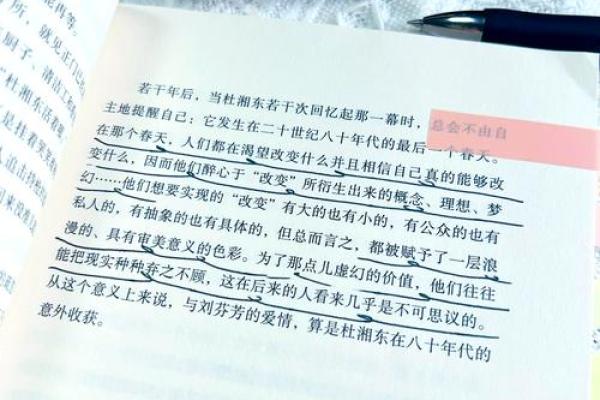 能再等。
所，就见正门已
厨子、清洁工和
"杜湘东活着
是挂着笑
若干年后，当杜湘东若干次回忆起那一幕时，总会不由自
主地提醒自己：它发生在二十世纪八十年代的最后一个春天。
在那个春天，人们都在渴望改变什么并且相信自己真的能够改
变什么，因而他们醉心于"改变"所衍生出来的概念、理想、梦
幻……他们想要实现的"改变"有大的也有小的，有公众的也有
私人的，有抽象的也有具体的，但总而言之，都被赋予了一层浪
漫的、具有审美意义的色彩。为了那点儿虚幻的价值，他们往往
能把现实种种弃之不顾，这在后来的人看来几乎是不可思议的。
从这个意义上来说，与刘芬芳的爱情，算是杜湘东在八十年代的
意外收获。